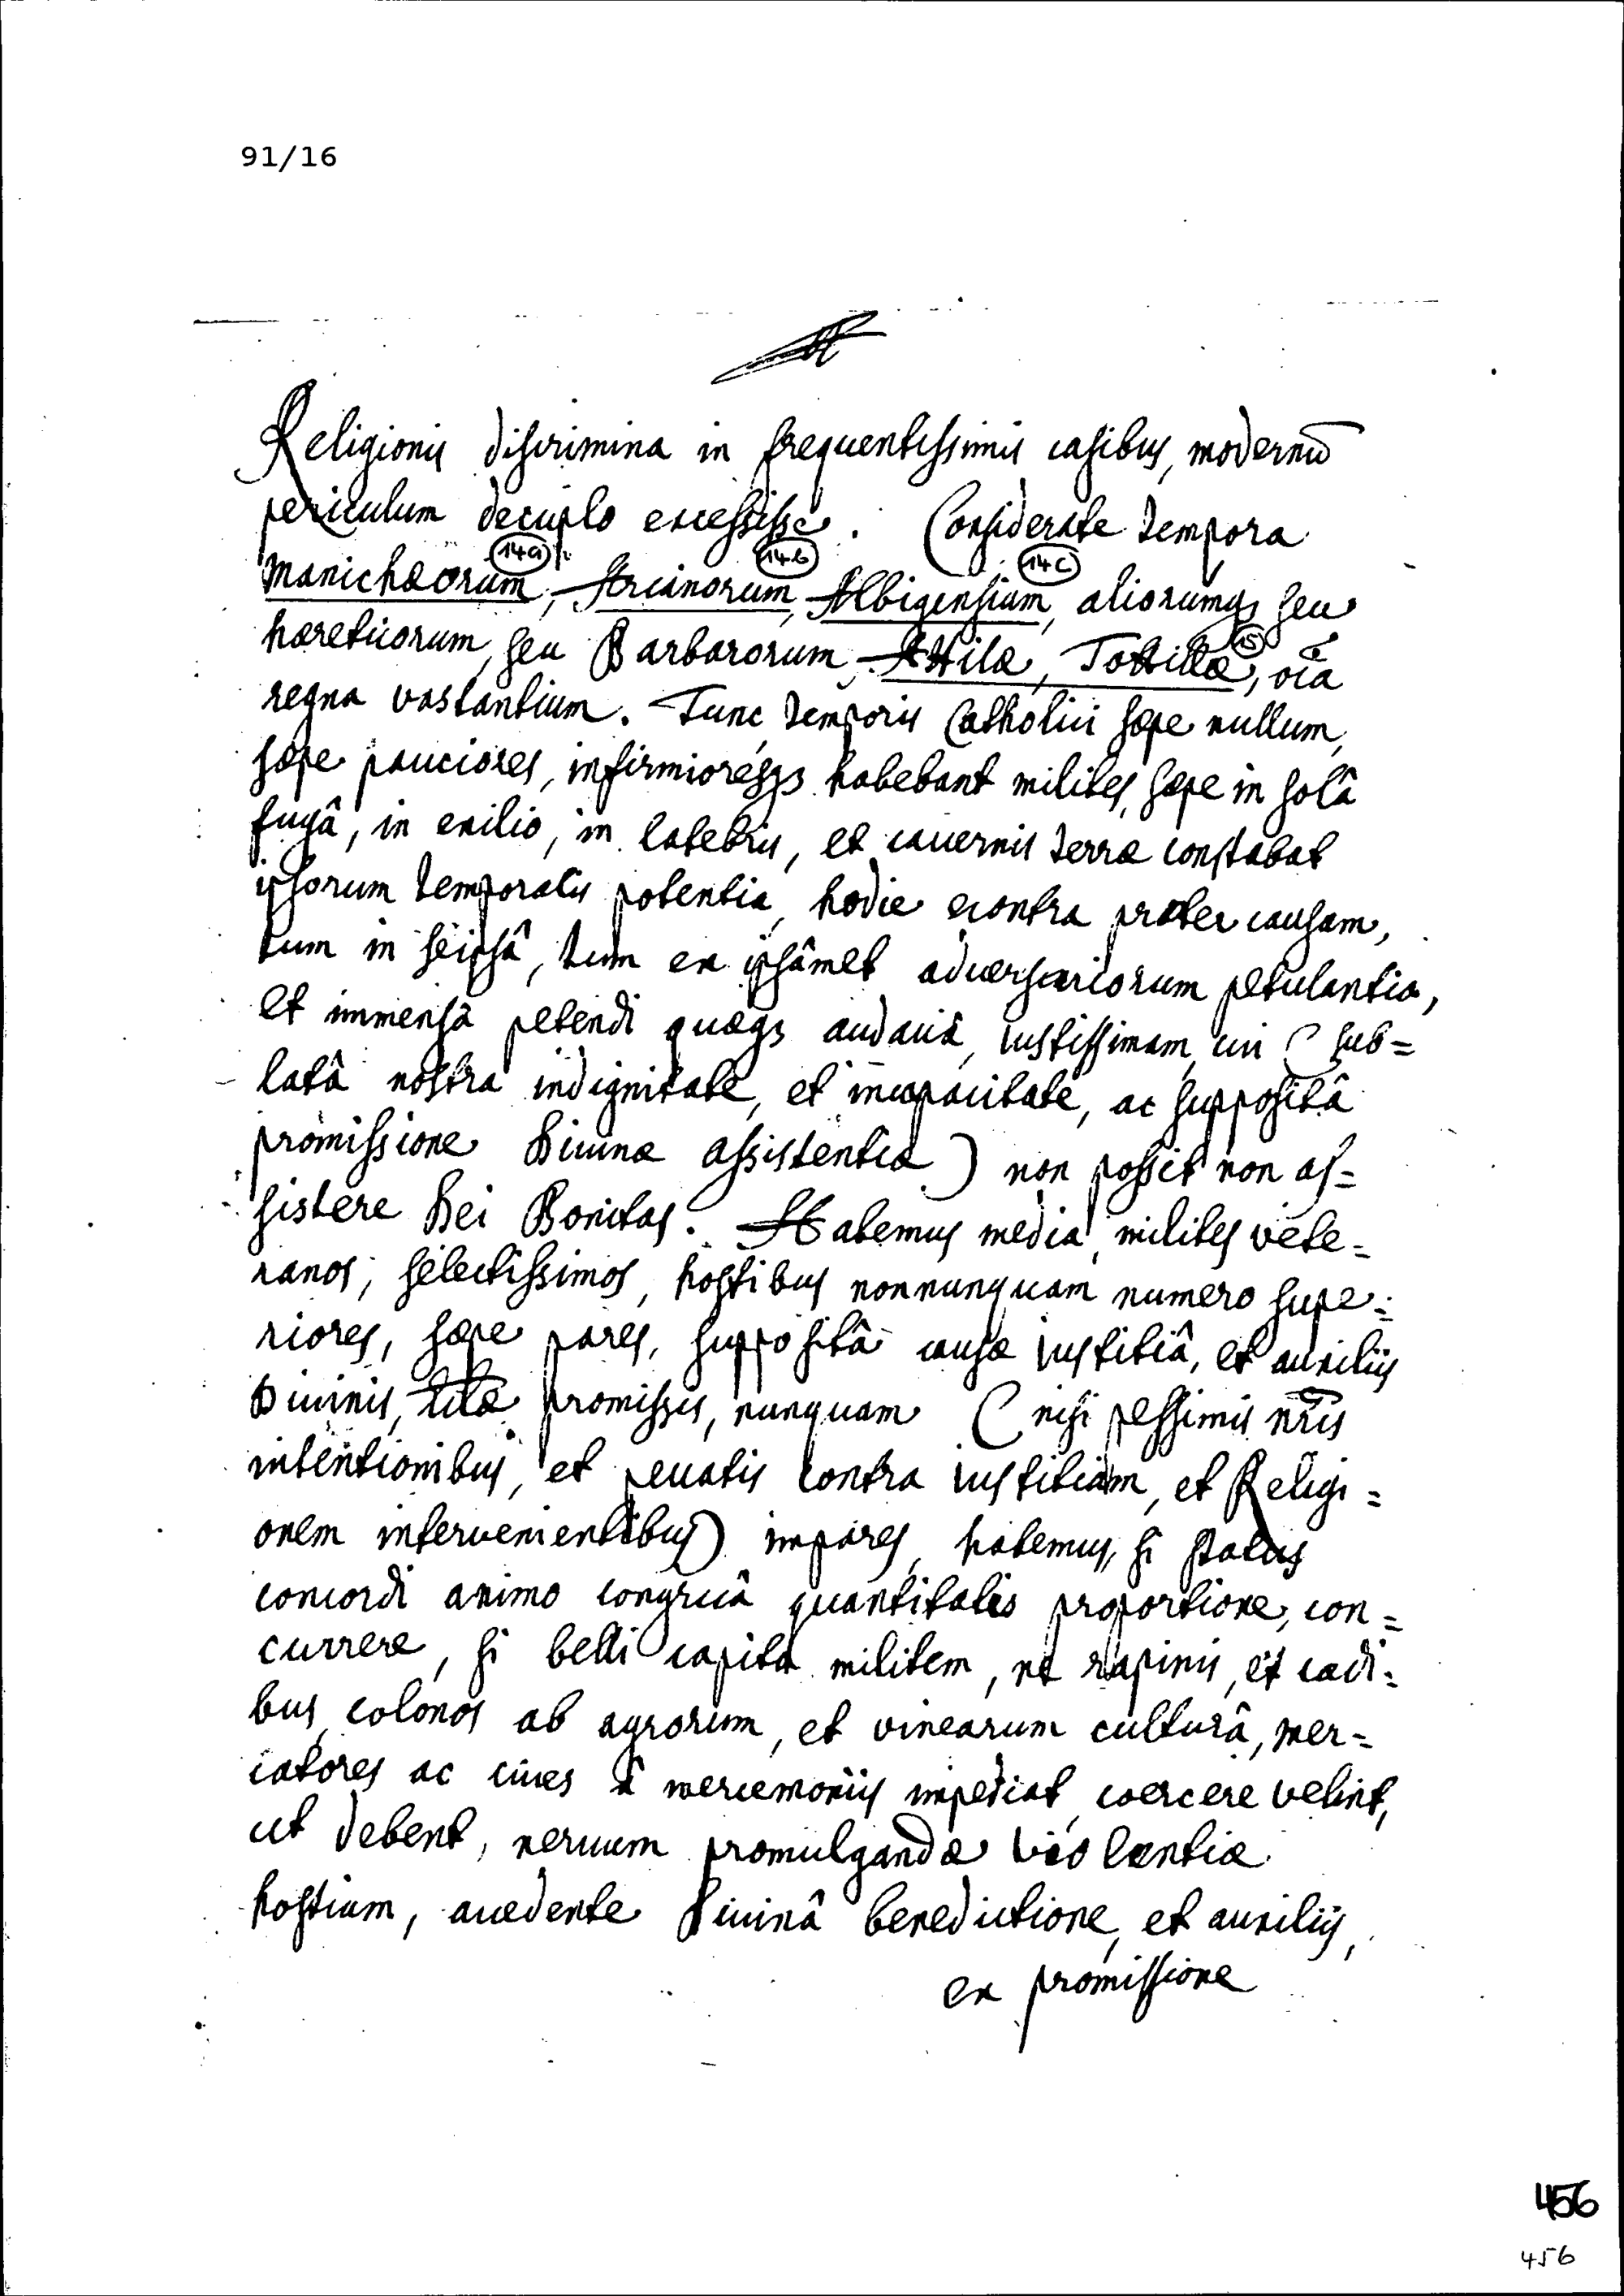 91/16
Religionis discrimina in frequentissimis casibus, modernū
periculum decuplo excessisse. Considerate tempora
14a 14b 14c
Manichæorum, Arianorum, Albigensium, aliorumq; seu
hæreticorum, seu Barbarorum, Attilæ, Tottilæ, 15 oīa
regna vastantium. Tunc temporis Catholici sæpe nullum,
sæpe pauciores, infirmioresq; habebant milites, sæpe in solâ
fugâ, in exilio, in latebris, et cauernis terræ constabat
ipsorum temporalis potentia, hodie econtra præter causam,
tum in seipsâ, tum ex ipsâmet aduersariorum petulantia,
et immensâ petendi quæq; audaciâ, iustissimam, cui ( sub=
latâ nostra indignitate, et incapacitate, ac suppositâ
promissione Diuinæ assistentiæ ) non possit non as=
sistere Dei Bonitas. Habemus media, milites vete=
ranos, selectissimos, hostibus nonnunquam numero supe=
riores, sæpe pares, suppositâ causæ iustitiâ, et auxiliis
Diuinis, promissis, nunquam ( nisi pessimis nr̄is
intentionibus, et peccatis contra iustitiam, et Religi=
onem intervenientibus) impares, habemus, si status
concordi animo congruâ quantitatis proportione, con=
currere, si belli capita militem, ne rapinis, et cædi=
bus, colonos ab agrorum, et vinearum culturâ, mer=
catores ac ciues à mercemoniis impediat, coercere velint,
ut debent, neruum promulgandæ violentiæ
hostium, accedente Diuinâ benedictione, et auxiliis,
ex promissione
456
456